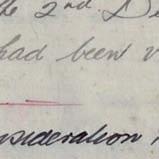 2nd D
had been
nsideration